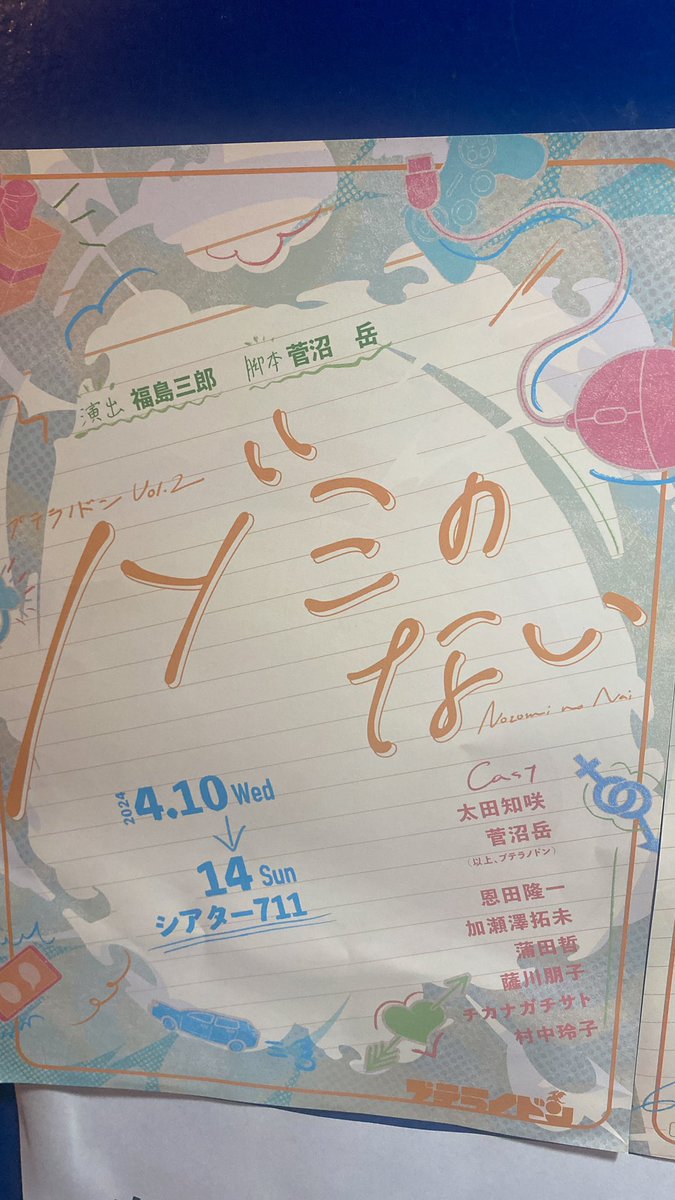 演出 福島三郎　脚本 菅沼　岳
プテラノドン Vol.2
ノゾミの
ない
Nozomi no Nai
2024 4.10 Wed
↓
14 Sun
シアター711
Cast
太田知咲
菅沼岳
(以上、プテラノドン)
恩田隆一
加瀬澤拓未
蒲田哲
薩川朋子
チカナガチサト
村中玲子
プテラノドン